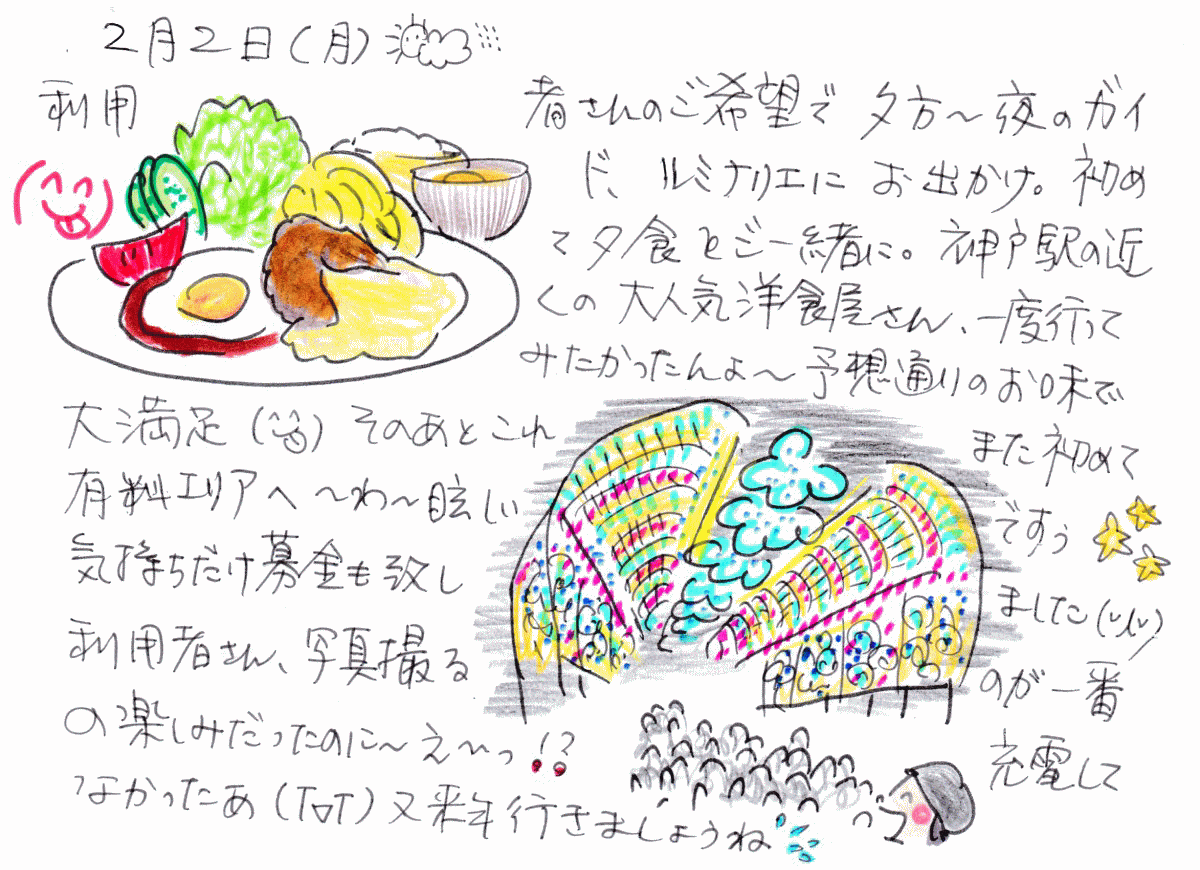 2月2日(月)
利用者さんのご希望で 夕方～夜のガイ
ド、ルミナリエに お出かけ。初め
て夕食をご一緒に。神戸駅の近
くの大人気洋食屋さん、一度行って
みたかったんよ～予想通りのお味で
大満足 そのあとこれ また初めて
有料エリアへ ～わ～眩しい ですぅ
気持ちだけ募金も致し ました
利用者さん、写真撮る のが一番
の楽しみだったのに～え～っ!? 充電して
なかったあ(ToT)又来年行きましょうね